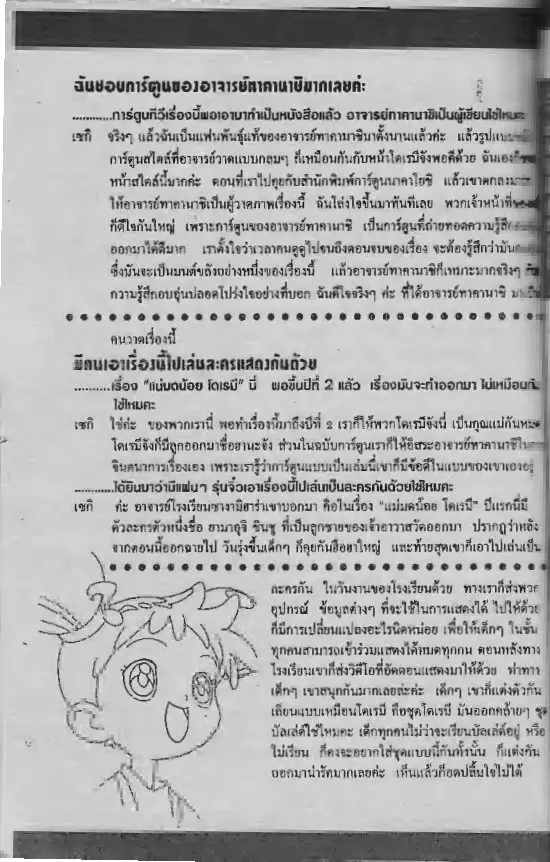 ฉันชอบการ์ตูนของอาจารย์ทาคานาชิมากเลยค่ะ
............การ์ตูนทีวีเรื่องนี้พอเอามาทำเป็นหนังสือแล้ว อาจารย์ทาคานาชิเป็นผู้เขียนใช่ไหมคะ
เซกิ จริงๆ แล้วฉันเป็นแฟนพันธุ์แท้ของอาจารย์ทาคานาชิมาตั้งนานแล้วค่ะ แล้วรูปแบบ
การ์ตูนสไตล์ที่อาจารย์วาดแบบกลมๆ ก็เหมือนกันกับหน้าโดเรมีจังพอดีด้วย ฉันเอง
หน้าสไตล์นี้มากค่ะ ตอนที่เราไปคุยกับสำนักพิมพ์การ์ตูนนาคาโยชิ แล้วเขาตกลง
ให้อาจารย์ทาคานาชิเป็นผู้วาดภาพเรื่องนี้ ฉันโล่งใจขึ้นมาทันทีเลย พวกเจ้าหน้าที่
ก็ดีใจกันใหญ่ เพราะการ์ตูนของอาจารย์ทาคานาชิ เป็นการ์ตูนที่ถ่ายทอดความรู้สึก
ออกมาได้ดีมาก เราตั้งใจว่าเวลาคนดูดูไปจนถึงตอนจบของเรื่อง จะต้องรู้สึกว่ามัน
ซึ่งมันจะเป็นมนต์ขลังอย่างหนึ่งของเรื่องนี้ แล้วอาจารย์ทาคานาชิก็เหมาะมากจริงๆ
ความรู้สึกอบอุ่นปลอดโปร่งใจอย่างที่บอก ฉันดีใจจริงๆ ค่ะ ที่ได้อาจารย์ทาคานาชิ
คนวาดเรื่องนี้
มีคนเอาเรื่องนี้ไปเล่นละครแสดงกันด้วย
..........เรื่อง "แม่มดน้อย โดเรมี" นี่ พอขึ้นปีที่ 2 แล้ว เรื่องมันจะทำออกมา ไม่เหมือนกัน
ใช่ไหมคะ
เซกิ ใช่ค่ะ ของพวกเรานี่ พอทำเรื่องนี้มาถึงปีที่ 2 เราก็ให้พวกโดเรมีจังนี่ เป็นคุณแม่กันหมด
โดเรมีจังก็มีลูกออกมาชื่อฮานะจัง ส่วนในฉบับการ์ตูนเราก็ให้อิสระอาจารย์ทาคานาชิ
จินตนาการเรื่องเอง เพราะเรารู้ว่าการ์ตูนแบบเป็นเล่มนี่เขาก็มีข้อดีในแบบของเขาเองอยู่
..........ได้ยินมาว่ามีแฟนๆ รุ่นจิ๋วเอาเรื่องนี้ไปเล่นเป็นละครกันด้วยใช่ไหมคะ
เซกิ ค่ะ อาจารย์โรงเรียนซางามิฮาร่าเขาบอกมา คือในเรื่อง "แม่มดน้อย โดเรมี" ปีแรกนี่มี
ตัวละครตัวหนึ่งชื่อ ยามาอุจิ ชินชู ที่เป็นลูกชายของเจ้าอาวาสวัดออกมา ปรากฏว่าหลัง
จากตอนนี้ออกฉายไป วันรุ่งขึ้นเด็กๆ ก็คุยกันฮือฮาใหญ่ และท้ายสุดเขาก็เอาไปเล่นเป็น
ละครกัน ในวันงานของโรงเรียนด้วย ทางเราก็ส่งพวก
อุปกรณ์ ข้อมูลต่างๆ ที่จะใช้ในการแสดงได้ ไปให้ด้วย
ก็มีการเปลี่ยนแปลงอะไรนิดหน่อย เพื่อให้เด็กๆ ในชั้น
ทุกคนสามารถเข้าร่วมแสดงได้หมดทุกคน ตอนหลังทาง
โรงเรียนเขาก็ส่งวิดีโอที่อัดตอนแสดงมาให้ด้วย ท่าทาง
เด็กๆ เขาสนุกกันมากเลยล่ะค่ะ เด็กๆ เขาก็แต่งตัวกัน
เลียนแบบเหมือนโดเรมี คือชุดโดเรมี มันออกคล้ายๆ ชุด
บัลเล่ต์ใช่ไหมคะ เด็กทุกคนไม่ว่าจะเรียนบัลเล่ต์อยู่ หรือ
ไม่เรียน ก็คงจะอยากใส่ชุดแบบนี้กันทั้งนั้น ก็แต่งกัน
ออกมาน่ารักมากเลยค่ะ เห็นแล้วก็อดปลื้มใจไม่ได้